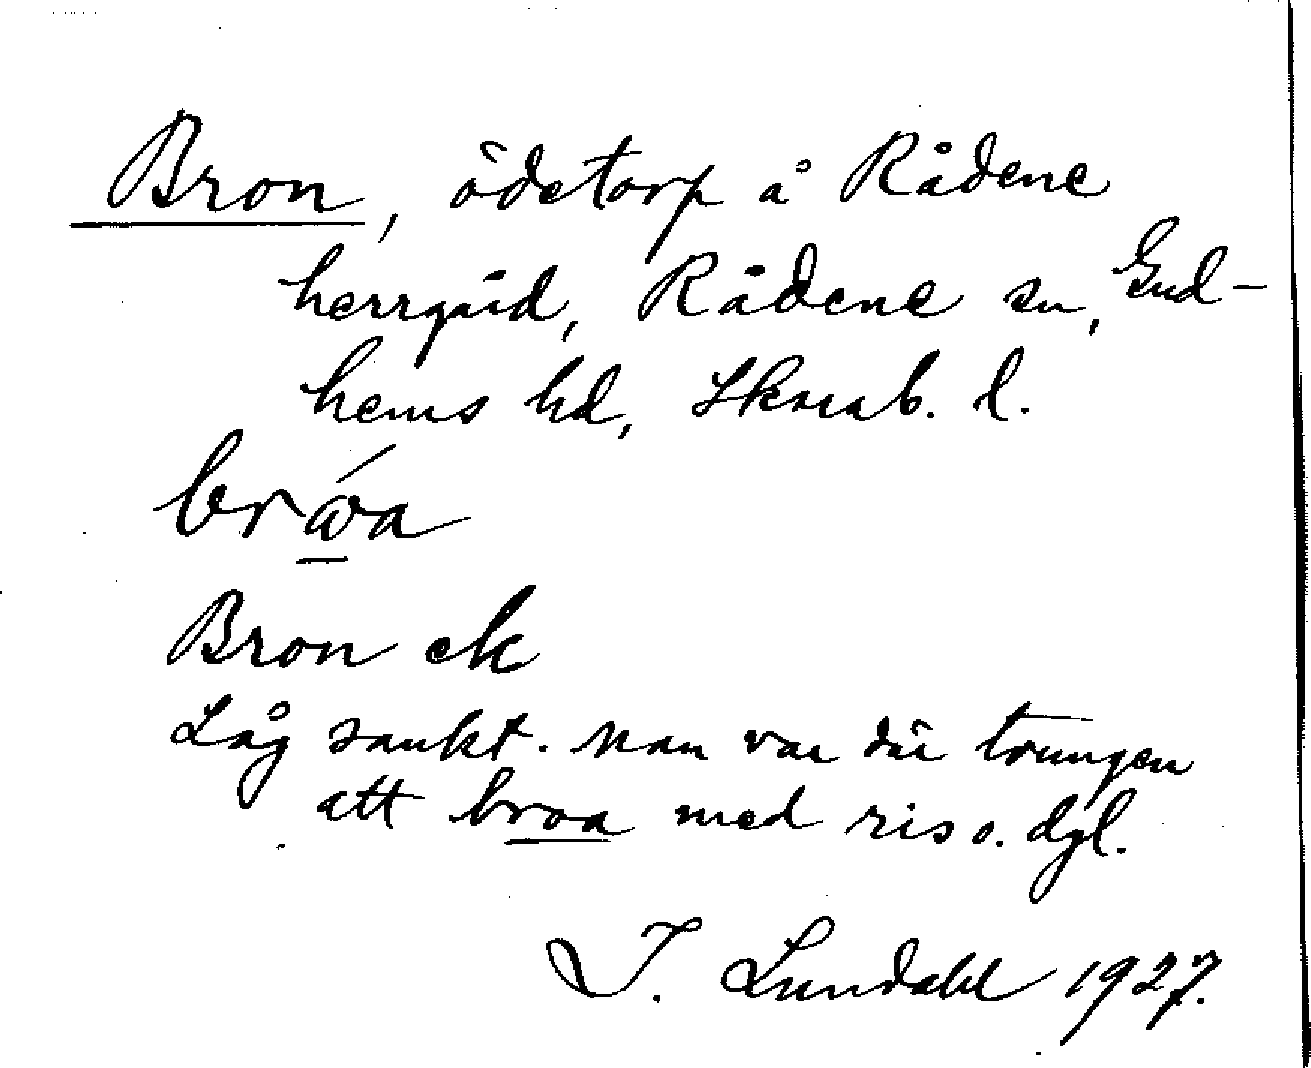 Bron, ödetorp å Rådene
herrgård, Rådene sn, Gud-
hems hd, Skarab. l.
Bron ek
Låg sankt. Man var där tvungen
att broa med ris o. dgl.
I. Lundahl 1927.